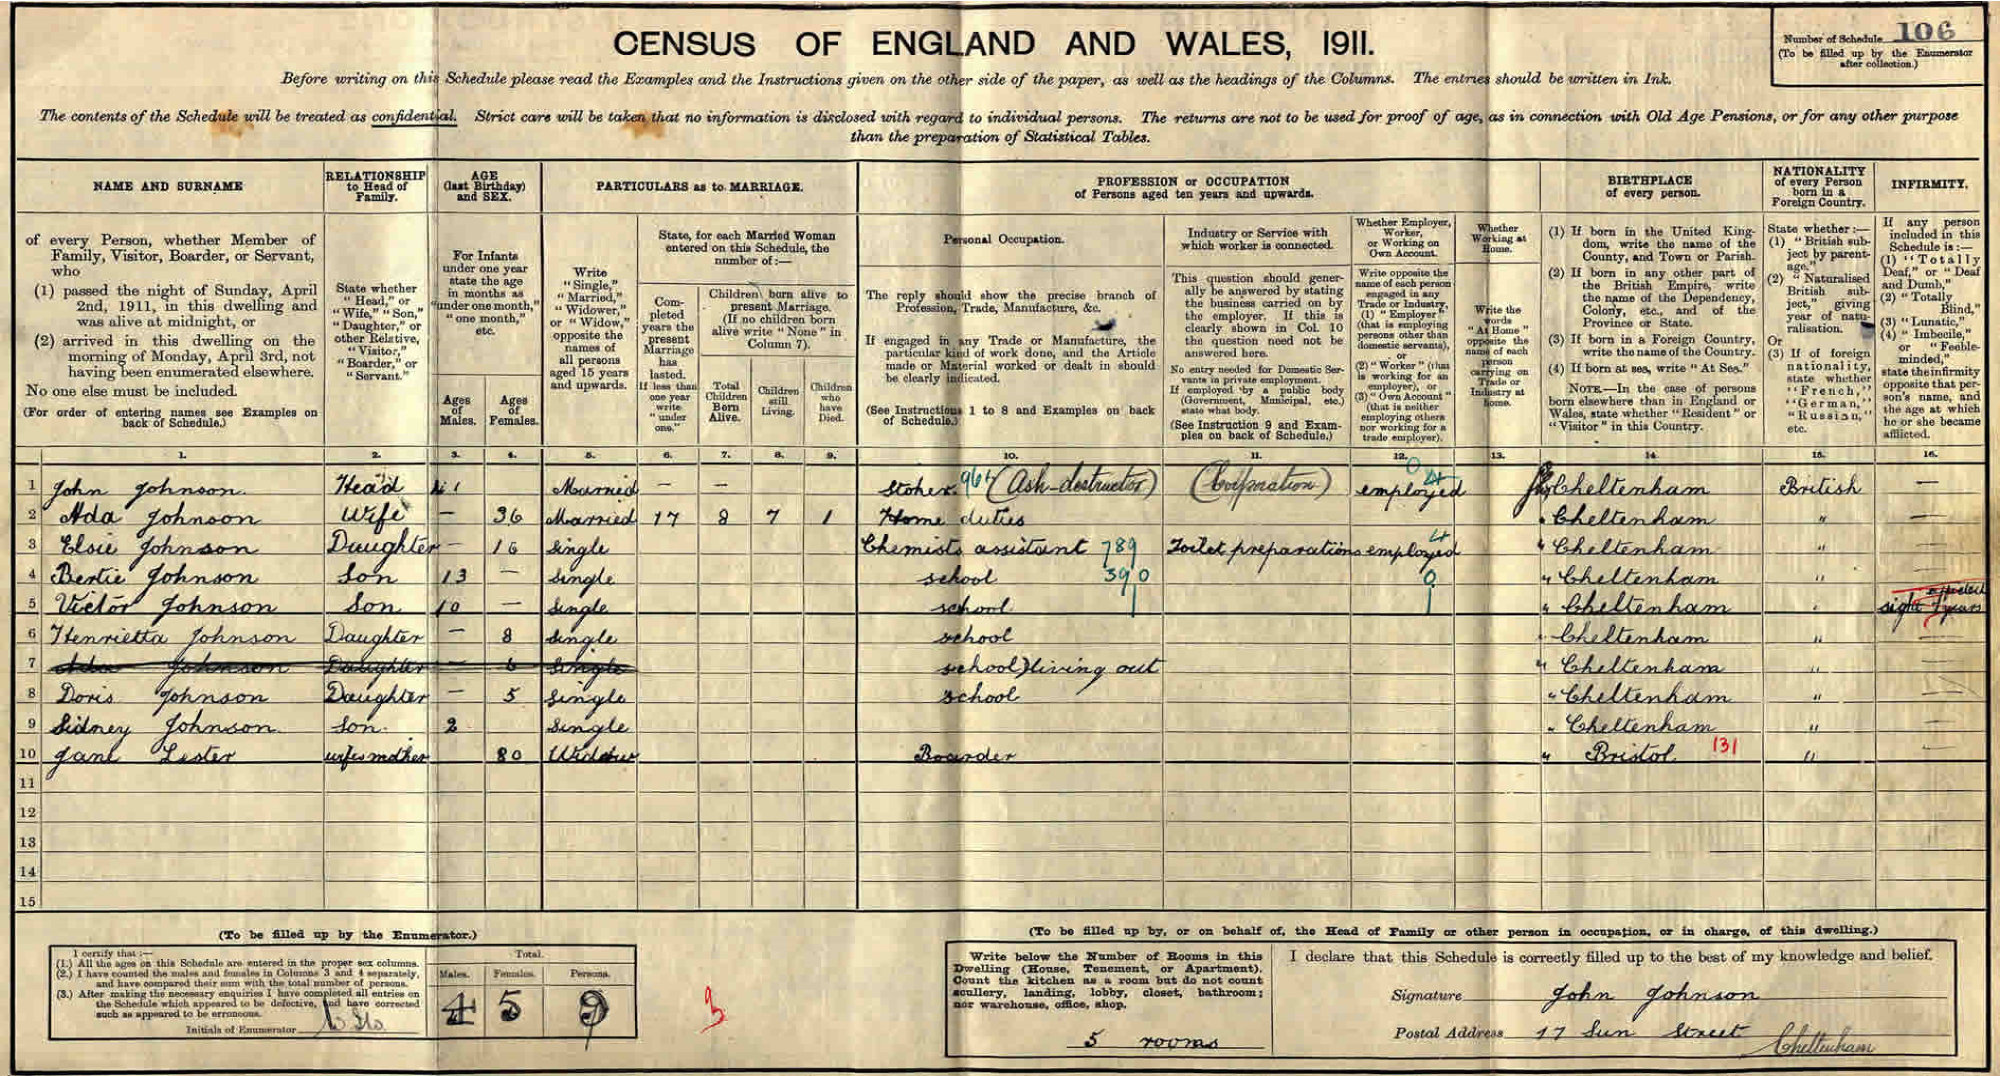 CENSUS OF ENGLAND AND WALES, 1911.
Number of Schedule 106
(To be filled up by the Enumerator
after collection.)
Before writing on this Schedule please read the Examples and the Instructions given on the other side of the paper, as well as the headings of the Columns. The entries should be written in Ink.
The contents of the Schedule will be treated as confidential. Strict care will be taken that no information is disclosed with regard to individual persons. The returns are not to be used for proof of age, as in connection with Old Age Pensions, or for any other purpose
than the preparation of Statistical Tables.
NAME AND SURNAME
of every Person, whether Member of
Family, Visitor, Boarder, or Servant,
who
(1) passed the night of Sunday, April
2nd, 1911, in this dwelling and
was alive at midnight, or
(2) arrived in this dwelling on the
morning of Monday, April 3rd, not
having been enumerated elsewhere.
No one else must be included.
(For order of entering names see Examples on
back of Schedule.)
RELATIONSHIP
to Head of
Family.
State whether
"Head," or
"Wife," "Son,"
"Daughter," or
other Relative,
"Visitor,"
"Boarder," or
"Servant."
AGE
(last Birthday)
and SEX.
For Infants
under one year
state the age
in months as
"under one month,"
"one month,"
etc.
Ages
of
Males.
Ages
of
Females.
PARTICULARS as to MARRIAGE.
Write
"Single,"
"Married,"
"Widower,"
or "Widow,"
opposite the
names of
all persons
aged 15 years
and upwards.
State, for each Married Woman
entered on this Schedule, the
number of:—
Com-
pleted
years the
present
Marriage
has
lasted.
If less than
one year
write
"under
one."
Children born alive to
present Marriage.
(If no children born
alive write "None" in
Column 7).
Total
Children
Born
Alive.
Children
still
Living.
Children
who
have
Died.
PROFESSION or OCCUPATION
of Persons aged ten years and upwards.
Personal Occupation.
The reply should show the precise branch of
Profession, Trade, Manufacture, &c.
If engaged in any Trade or Manufacture, the
particular kind of work done, and the Article
made or Material worked or dealt in should
be clearly indicated.
(See Instructions 1 to 8 and Examples on back
of Schedule.)
Industry or Service with
which worker is connected.
This question should gener-
ally be answered by stating
the business carried on by
the employer. If this is
clearly shown in Col. 10
the question need not be
answered here.
No entry needed for Domestic Ser-
vants in private employment.
If employed by a public body
(Government, Municipal, etc.)
state what body.
(See Instruction 9 and Exam-
ples on back of Schedule.)
Whether Employer,
Worker,
or Working on
Own Account.
Write opposite the
name of each person
engaged in any
Trade or Industry,
(1) "Employer"
(that is employing
persons other than
domestic servants),
or
(2) "Worker" (that
is working for an
employer), or
(3) "Own Account"
(that is neither
employing others
nor working for a
trade employer).
Whether
Working at
Home.
Write the
words
"At Home"
opposite the
name of each
person
carrying on
Trade or
Industry at
home.
BIRTHPLACE
of every person.
(1) If born in the United King-
dom, write the name of the
County, and Town or Parish.
(2) If born in any other part of
the British Empire, write
the name of the Dependency,
Colony, etc., and of the
Province or State.
(3) If born in a Foreign Country,
write the name of the Country.
(4) If born at sea, write "At Sea."
NOTE.—In the case of persons
born elsewhere than in England or
Wales, state whether "Resident" or
"Visitor" in this Country.
NATIONALITY
of every Person
born in a
Foreign Country.
State whether:—
(1) "British sub-
ject by parent-
age,"
(2) "Naturalised
British sub-
ject," giving
year of natu-
ralisation.
Or
(3) If of foreign
nationality,
state whether
"French,"
"German,"
"Russian,"
etc.
INFIRMITY.
If any person
included in this
Schedule is:—
(1) "Totally
Deaf," or "Deaf
and Dumb,"
(2) "Totally
Blind,"
(3) "Lunatic,"
(4) "Imbecile,"
or "Feeble-
minded,"
state the infirmity
opposite that per-
son's name, and
the age at which
he or she became
afflicted.
1. 2. 3. 4. 5. 6. 7. 8. 9. 10. 11. 12. 13. 14. 15. 16.
1 John Johnson. Head 41 Married — — Stoker 964 (Ash destructor) (Corporation) employed Cheltenham British —
2 Ada Johnson Wife — 36 Married 17 8 7 1 Home duties " Cheltenham " —
3 Elsie Johnson Daughter — 16 Single Chemists assistant 789 Toilet preparations employed " Cheltenham " —
4 Bertie Johnson Son 13 — Single school 390 0 " Cheltenham " —
5 Victor Johnson Son 10 — Single school " Cheltenham " sight affected 7 years
6 Henrietta Johnson Daughter — 8 Single school " Cheltenham " —
7 Ada Johnson Daughter — 6 Single school) living out " Cheltenham " —
8 Doris Johnson Daughter — 5 Single school " Cheltenham " —
9 Sidney Johnson. Son. 2 Single " Cheltenham " —
10 Jane Lester wifes mother 80 Widow Boarder " Bristol 131 " —
11
12
13
14
15
(To be filled up by the Enumerator.)
I certify that:—
(1.) All the ages on this Schedule are entered in the proper sex columns.
(2.) I have counted the males and females in Columns 3 and 4 separately,
and have compared their sum with the total number of persons.
(3.) After making the necessary enquiries I have completed all entries on
the Schedule which appeared to be defective, and have corrected
such as appeared to be erroneous.
Initials of Enumerator
Total.
Males. Females. Persons.
4 5 9
(To be filled up by, or on behalf of, the Head of Family or other person in occupation, or in charge, of this dwelling.)
Write below the Number of Rooms in this
Dwelling (House, Tenement, or Apartment).
Count the kitchen as a room but do not count
scullery, landing, lobby, closet, bathroom;
nor warehouse, office, shop.
5 rooms
I declare that this Schedule is correctly filled up to the best of my knowledge and belief.
Signature John Johnson
Postal Address 17 Sun Street Cheltenham